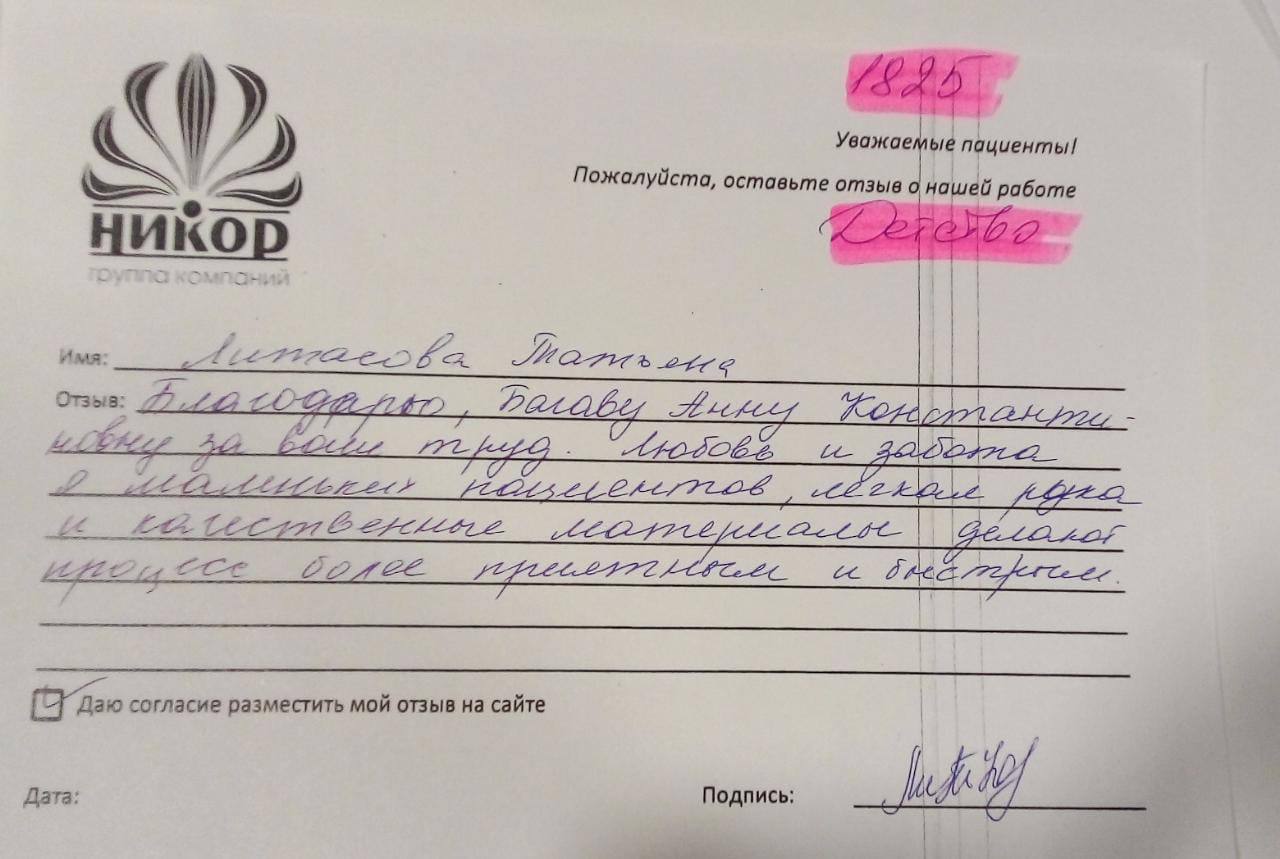 1825
Уважаемые пациенты!
Пожалуйста, оставьте отзыв о нашей работе
Детство
НИКОР
группа компаний
Имя: Литасова Татьяна
Отзыв: Благодарю, Багаву Анну Константи-
новну за ваш труд. Любовь и забота
о маленьких пациентов, легкая рука
и качественные материалы делают
процесс более приятным и быстрым.
Даю согласие разместить мой отзыв на сайте
Дата:
Подпись: